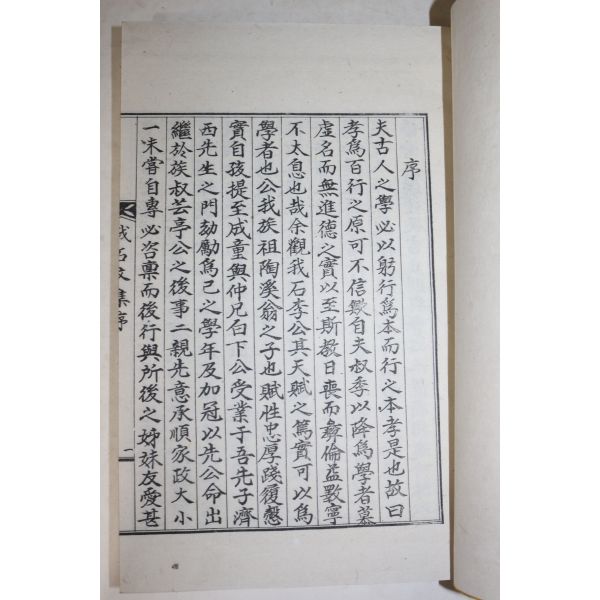 序
夫古人之學必以躬行爲本而行之本孝是也故曰
孝爲百行之原可不信歟自夫叔季以降爲學者慕
虛名而無進德之實以至斯敎日喪而彛倫益斁寧
不太息也哉余觀我石李公其天賦之篤實可以爲
學者也公我族祖陶溪翁之子也賦性忠厚踐履慤
實自孩提至成童與仲兄白下公受業于吾先子濟
西先生之門劬勵爲己之學年及加冠以先公命出
繼於族叔芸亭公之後事二親先意承順家政大小
一未嘗自專必咨稟而後行與所後之姊妹友愛甚
我石文集序
一